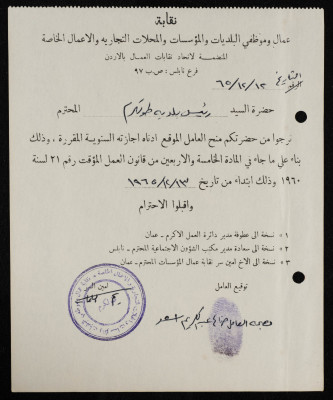 نقابة
عمال وموظفي البلديات والمؤسسات والمحلات التجاريه والاعمال الخاصة
المنضمة لاتحاد نقابات العمال بالاردن
فرع نابلس : ص.ب ٩٧
التاريخ ٦٥/١٢/١٢
حضرة السيد رئيس بلدية طولكرم المحترم
نرجوا من حضرتكم منح العامل الموقع ادناه اجازته السنوية المقررة ، وذلك
بناء على ما جاء في المادة الخامسة والاربعين من قانون العمل المؤقت رقم ٢١ لسنة
١٩٦٠ وذلك ابتداء من تاريخ ١٩٦٥/١٢/١٣
واقبلوا الاحترام
١ - نسخة الى عطوفة مدير دائرة العمل الاكرم - عمان
٢ - نسخة الى سعادة مدير مكتب الشؤون الاجتماعية المحترم - نابلس
٣ - نسخة الى الاخ امين سر نقابة عمال المؤسسات المحترم - عمان
امين السر
توقيع العامل
بصمة العامل